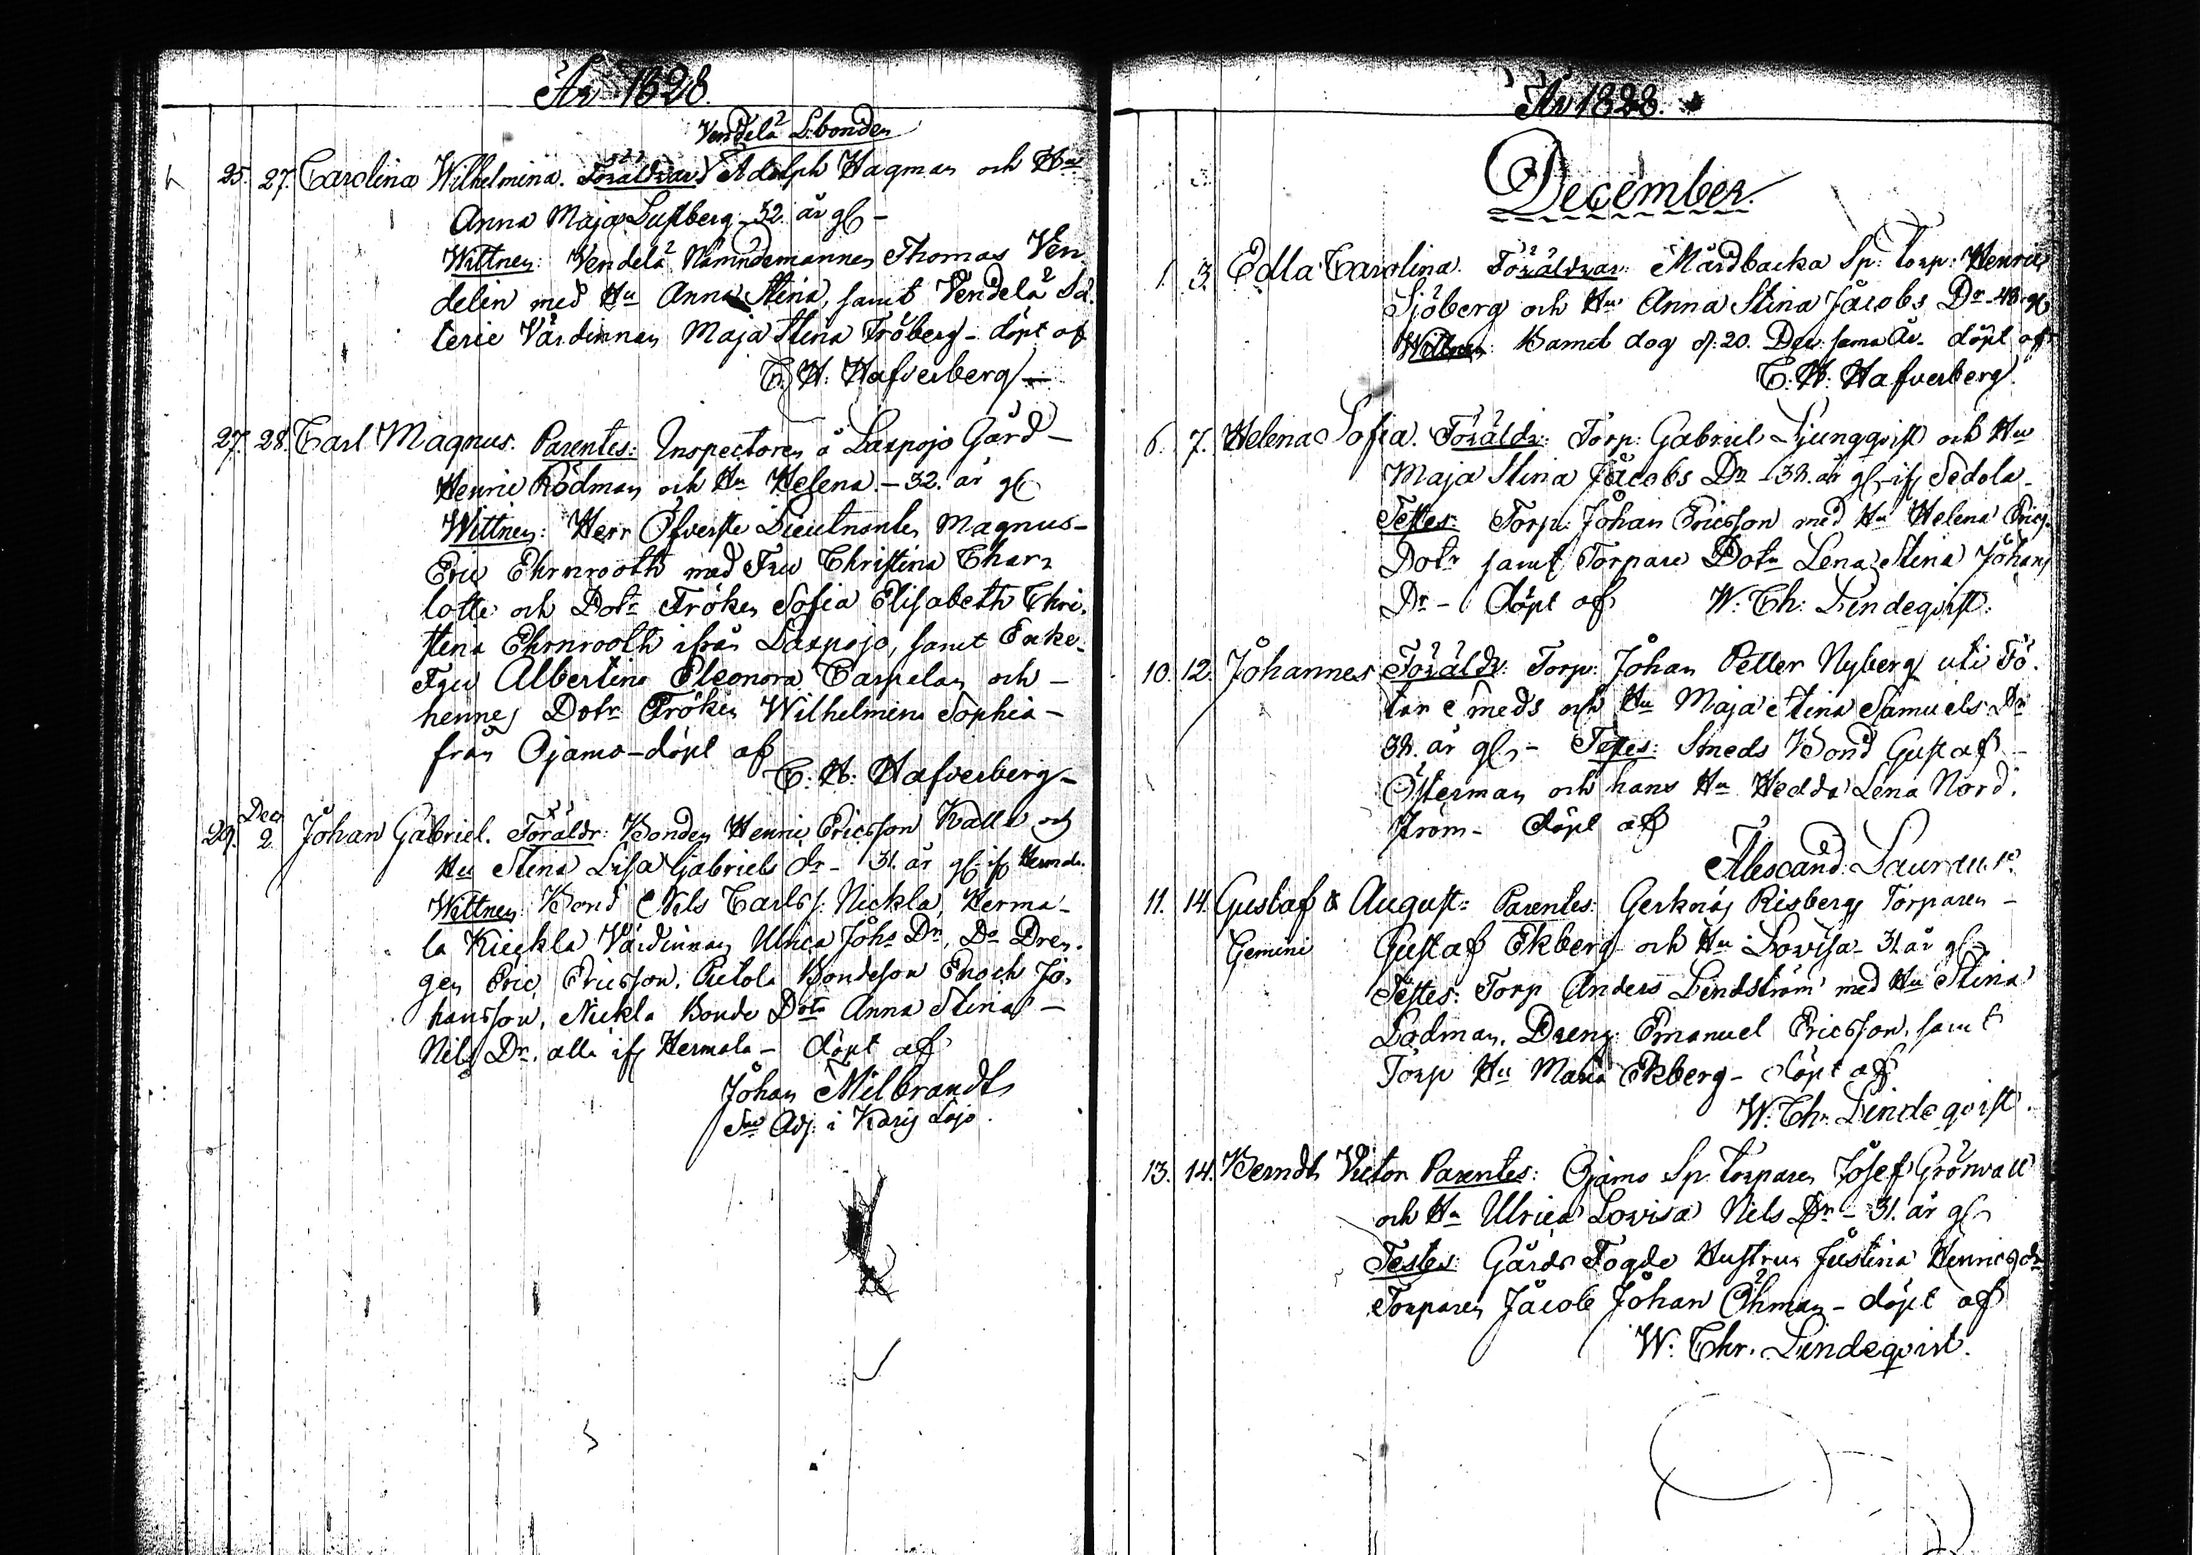 År 1828.
Vendelä L:bonden
25. 27. Carolina Wilhelmina. Föräldrar: Adolph Hagman och Hu
Anna Maja Lustberg - 32. år gl -
Wittnen: Vendelä Nämndemannen Thomas Ven
delin med Hu Anna Stina, samt Vendelä
terie Värdinnan Maja Stina Fröberg - döpt af
C. H. Hafverberg -
27. 28. Carl Magnus. Parentes: Inspectoren å Laxpojo Gård -
Henric Rödman och Hu Helena. - 32. år gl
Wittnen: Herr Öfverste Lieutnanten Magnus -
Eric Ehrnrooth med Fru Christina Char
lotte och Dotr Fröken Sofia Elisabeth Chri-
stina Ehrnrooth ifrån Laxpojo, samt Enke-
Fru Albertina Eleonora Carpelan och -
hennes Dotr Fröken Wilhelmina Sophia -
från Ojamo - döpt af
C. H. Hafverberg -
Dec
29. 2 Johan Gabriel. Föräldr: Bonden Henric Ericsson Kalla och
Hu Stina Lisa Gabriels dr - 31. år gl. if Hermala.
Wittnen: Bond Nils Carls s. Nickla, Herma-
la Värdinnan Ulrica Johs Dr, Do Dren-
gen Eric Ericsson, Bondeson Enoch Jo-
hansson, Nickla Bonde Dotr Anna Stina -
Nils Dr. alla ifr Hermala - döpt af
Johan Milbrandt
Adj: i Karis Lojo.
År 1828.
December.
1. 3 Edla Carolina. Föräldrar: Mårdbacka Sp: torp: Henric
Sjöberg och Hu Anna Stina Jacobs Dr - 48 år gl
Wittnen: Barnet dog d. 20. Dec: sama År. döpt af
C. H. Hafverberg.
6. 7. Helena Sofia. Föräldr: Torp: Gabriel Ljungqvist och Hu
Maja Stina Jacobs Dr - 38. år gl. if Sedola -
Testes: Torp: Johan Ericsson med Hu Helena Erics
Dotr samt Torpare Dotr Lena Stina Johans
Dr - döpt af W: Ch: Lindeqvist:
10. 12. Johannes Föräldr: Torp: Johan Petter Nyberg uti Fö-
tar Smeds och Hu Maja Stina Samuels Dr
38. år gl. - Testes: Smeds Bond Gustaf -
Österman och hans Hu Hedda Lena Nord-
ström - döpt af
Alexand: Laurœus.
11. 14. Gustaf & August: Parentes: Gerknäs Risberg Torparen -
Gemini Gustaf Ekberg och Hu Lovisa - 31. år gl -
Testes: Torp Anders Lindström med Hu Stina
Lodman, Dreng: Emanuel Ericsson, samt
Torp Hu Maria Ekberg - döpt af
W: Ch: Lindeqvist.
13. 14. Berndt Victor Parentes: Ojamo Sp: torparen Josef Grönvall
och Hu Ulrica Lovisa Nils Dr - 31. år gl
Testes: Gårds Fogde Hustrun Justina Henricsdr
Torparen Jacob Johan Öhman - döpt af
W: Chr. Lindeqvist.